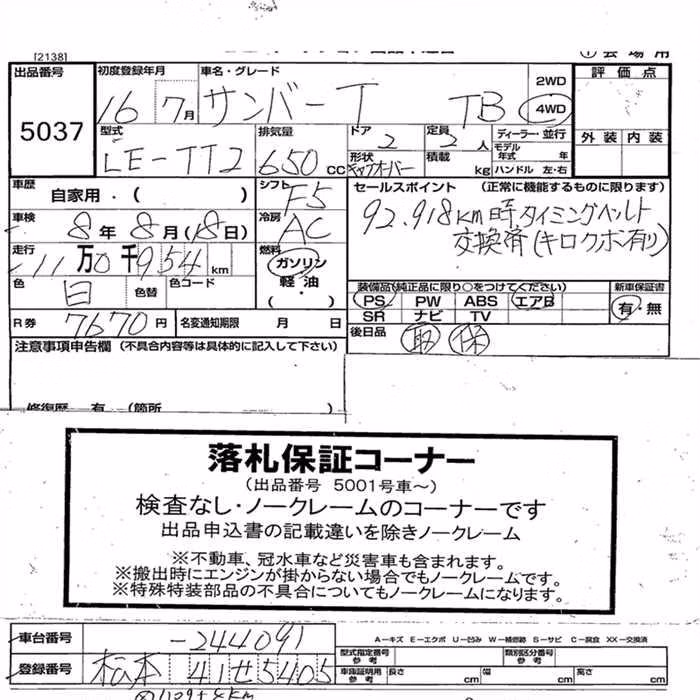 [2138]
出品番号 5037
初度登録年月 16 7月
車名・グレード サンバーT TB
2WD
4WD
評価点
外装 内装
型式 LE-TT2
排気量 650 CC
ドア 2
定員 2 人
ディーラー・並行
モデル年式 年
形状 キャブオーバー
積載 kg
ハンドル 左・右
車歴 自家用・( )
シフト F5
車検 8年8月(18日)
冷房 AC
走行 11万0千954 km
燃料 ガソリン 軽油・( )
色 白 色替 色コード
R券 7670円
名変通知期限 月 日
セールスポイント (正常に機能するものに限ります)
92,918km時タイミングベルト
交換済(キロクボ有り)
装備品(純正品に限り○をつけてください)
PS PW ABS エアB
SR ナビ TV
新車保証書
有・無
後日品 取 保
注意事項申告欄 (不具合内容等は具体的に記入して下さい)
修復歴 有 (箇所 )
落札保証コーナー
(出品番号 5001号車~)
検査なし・ノークレームのコーナーです
出品申込書の記載違いを除きノークレーム
※不動車、冠水車など災害車も含まれます。
※搬出時にエンジンが掛からない場合でもノークレームです。
※特殊特装部品の不具合についてもノークレームになります。
車台番号 -244091
A-キズ E-エクボ U-凹み W-補修跡 S-サビ C-腐食 XX-交換済
型式指定番号 参考
類別区分番号 参考
登録番号 松本 41せ5405
車庫証明用 参考 長さ cm 幅 cm 高さ cm